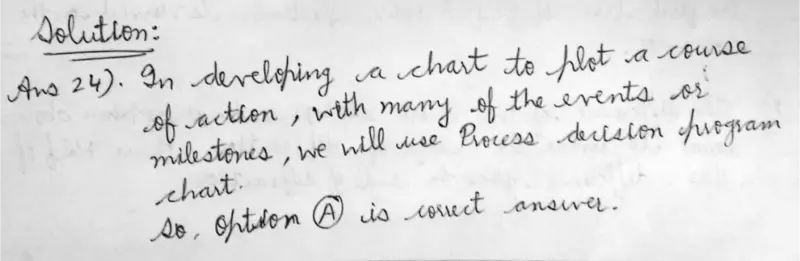 Solution:
Ans 24). In developing a chart to plot a course
of action, with many of the events or
milestones, we will use Process decision program
chart.
So, option Ⓐ is correct answer.